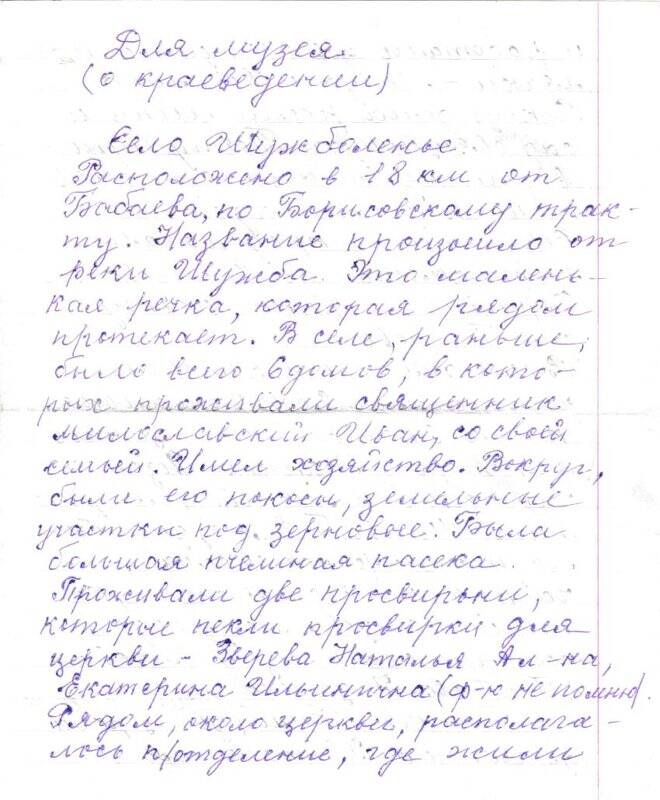 Для музея.
(о краеведении)
Село Шужболенье
Расположено в 18 км от
Бабаева, по Борисовскому трак-
ту. Название произошло от
реки Шужба. Это малень-
кая речка, которая рядом
протекает. В селе, раньше,
было всего 6 домов, в кото-
рых проживали священник
милославский Иван, со своей
семьей. Имел хозяйство. Вокруг,
были его покосы, земельные
участки под зерновые. Была
большая пчелиная пасека.
Проживали две просвирьни,
которые пекли просвирки для
церкви - Зверева Наталья Ал-на,
Екатерина Ильинична (ф-ю не помню).
Рядом, около церкви, располага-
лось п/отделение, где жили